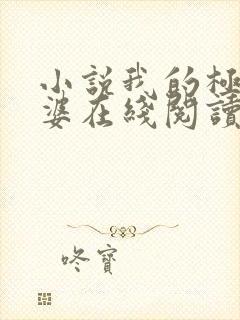 小説我的極
婆在綫閱讀
咚寶